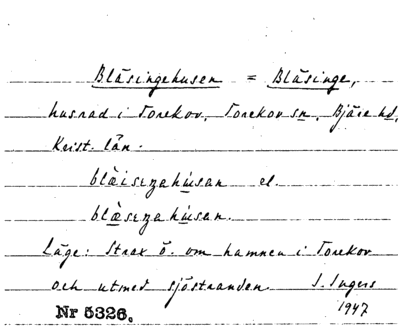 Bläsingehusen = Bläsinge,
husrad i Torekov, Torekov sn, Bjäre hd,
Krist. län.
blæ̀isɩŋahúsan el.
blæ̀sɩŋahúsan.
Läge: Strax ö. om hamnen i Torekov
och utmed sjöstranden. I. Ingers
1947
Nr 5326.